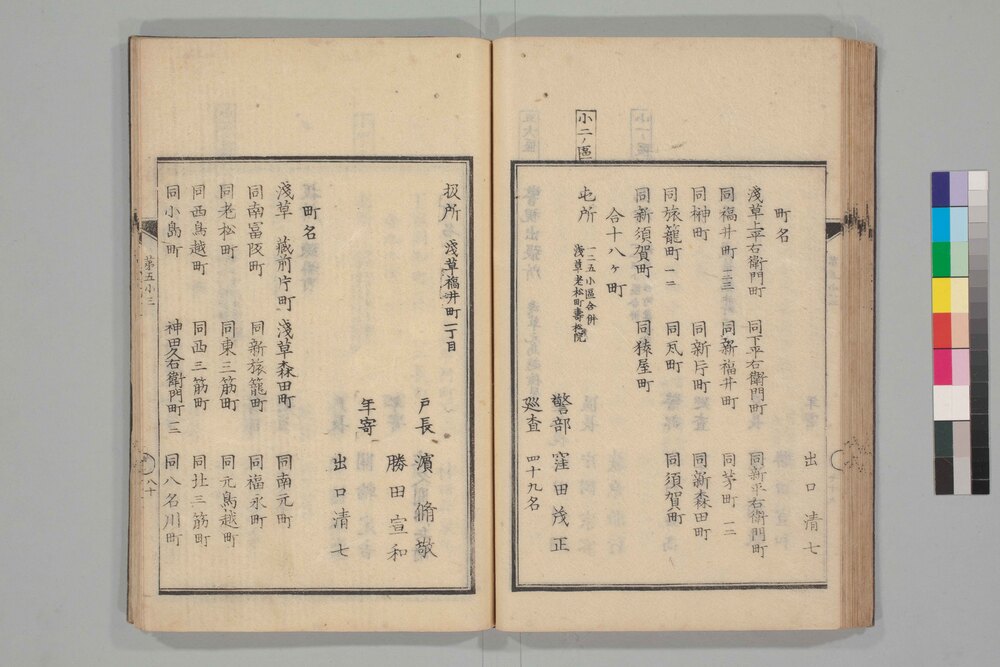 出口清七
町名
淺草上平右衞門町 同下平右衞門町 同新平右衞門町
同福井町一二三 同新福井町 同茅町一二
同榊町 同新片町 同新森田町
同旅籠町一二 同瓦町 同須賀町
同新須賀町 同猿屋町
合十八ヶ町
小二ノ區
屯所 一二五小區合併
淺草老松町壽松院
警部 窪田茂正
巡査 四十九名
扱所 淺草福井町一丁目
戸長 濱 脩敬
勝田宣和
年寄
出口清七
町名
淺草藏前片町 淺草森田町 同南元町
同南富坂町 同新旅籠町 同福永町
同老松町 同東三筋町 同元鳥越町
同西鳥越町 同西三筋町 同北三筋町
同小島町 神田久右衞門町一二 同八名川町
第五小三
八十